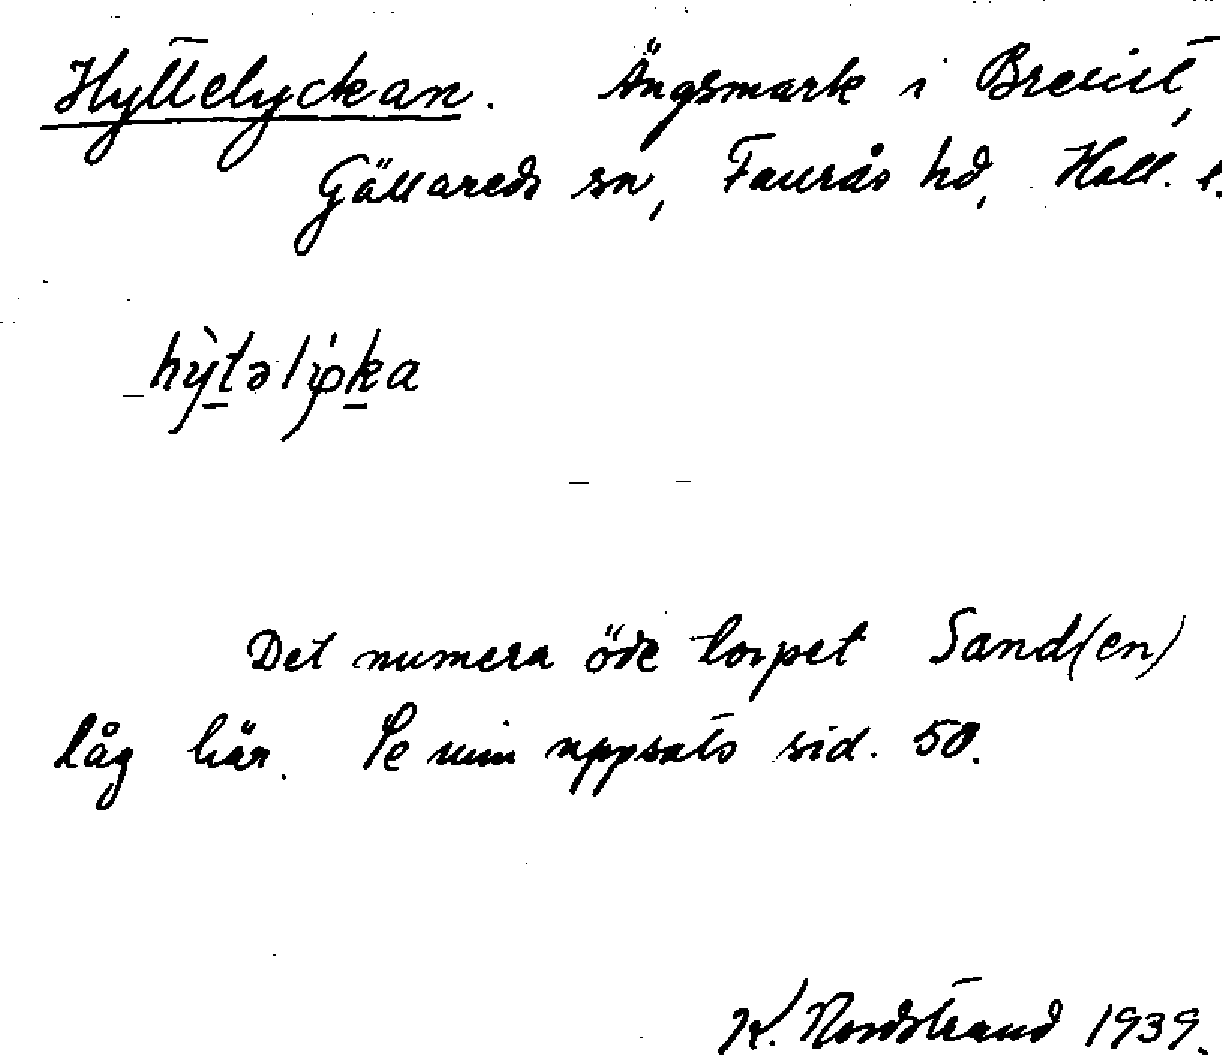 Hyttelyckan. Ängsmark i Brevist,
Gällareds sn, Faurås hd, Hall. l.
hỳtəlýka
– –
Det numera öde torpet Sand(en)
låg här. Se min uppsats sid. 50.
K. Nordstrand 1939.